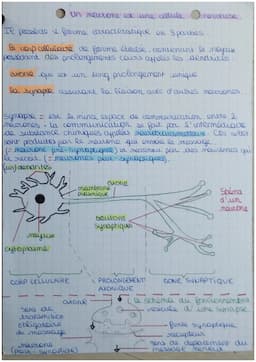 Un neurone est une cellule nerveuse.
Il possède 1 forme caractéristique en 3 parties.
Le corp cellulaire de forme étoilée, contenant le noyau
possédant des prolongements courts appelés les dendrites
axone qui est un long prolongement unique
La synapse assurant la liaison avec d'autres neurones.
Synapse = est le mince espace de communication entre 2
neurones - la communication se fait par l'intermédiaire
de substances chimiques appelés neurotransmetteurs. Ces
sont produits par le neurone qui envoie le message
(= neurone pré-synaptique) et
le reçoit. (= neurone post-synaptique).
(les) dendrites
axone
membrane
plasmique
Schéma
d'un
neurone
boutons
synaptiques
noyau
cytoplasme
CORP CELLULAIRE
PROLONGEMENT
AXONIQUE
ZONE SYNAPTIQUE
axone
le schéma du fonctionnement
d'une synapse
sens de
transmission
obligatoire
du message
fente synaptique
récepteur
sens de
message nerveux
neurone
(post-synaptique)